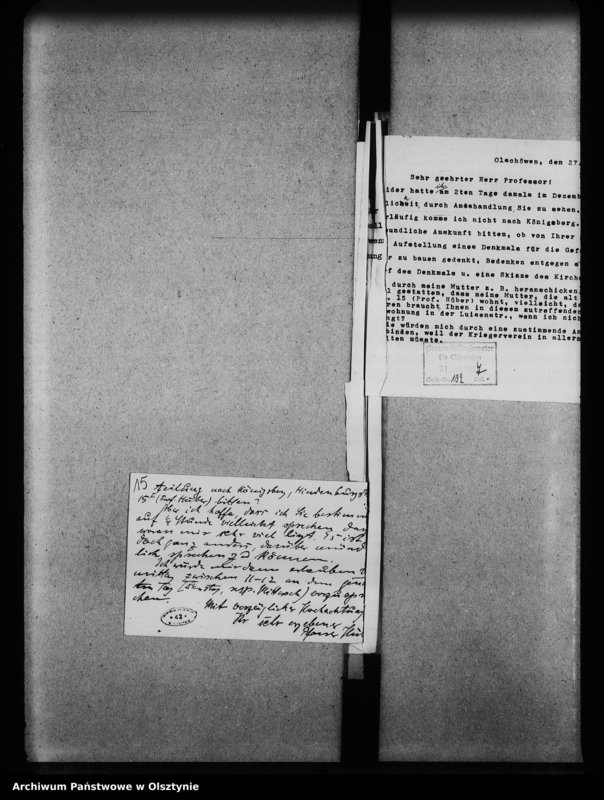 Olschöwen, den 27.
Sehr geehrter Herr Professor!
ider hatte ich am 2ten Tage damals im Dezemb
lichkeit durch Amtshandlung Sie zu sehen.
rläufig komme ich nicht nach Königsberg.
undliche Auskunft bitten, ob von Ihrer
Aufstellung eines Denkmals für die Gef
r zu bauen gedenkt, Bedenken entgegen s
f des Denkmals u. eine Skizze des Kirche
durch meine Mutter z. B. heranschicken.
l gestatten, dass meine Mutter, die alt
. 15 (Prof. Hüber) wohnt, vielleicht, da
ren braucht Ihnen in diesem zutreffenden
wohnung in der Luisenstr., wenn ich nich
ngt?
ie würden mich durch eine zustimmende An
binden, weil der Kriegerverein in allern
lten müsste.
15 nach Königsberg, Hindenburgstr
15 (Prof. Hüber) bitten?
ich hoffe, dass ich Sie bestimm
auf ½ Stunde vielleicht sprechen
woran mir sehr viel liegt. Es ist
doch ganz anders, darüber münd
lich sprechen zu können.
Ich würde mir denn erlauben
mittag zwischen 11-12 an dem
ten Tag (Dienstag, resp. Mittwoch) vorzuspre
chen.
Mit vorzüglicher Hochachtung
Ihr sehr ergebener
Pfarrer
42
Archiwum Państwowe w Olsztynie